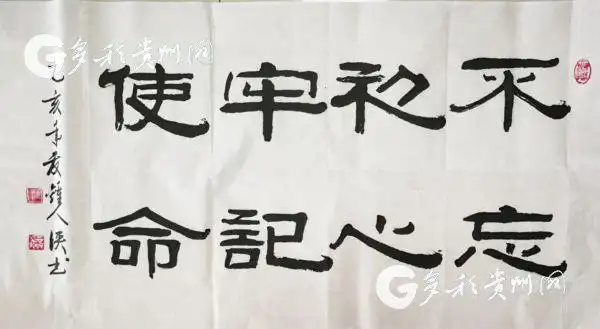 不忘
初心
牢記
使命
己亥年夏人书
多彩贵州网
多彩贵州网